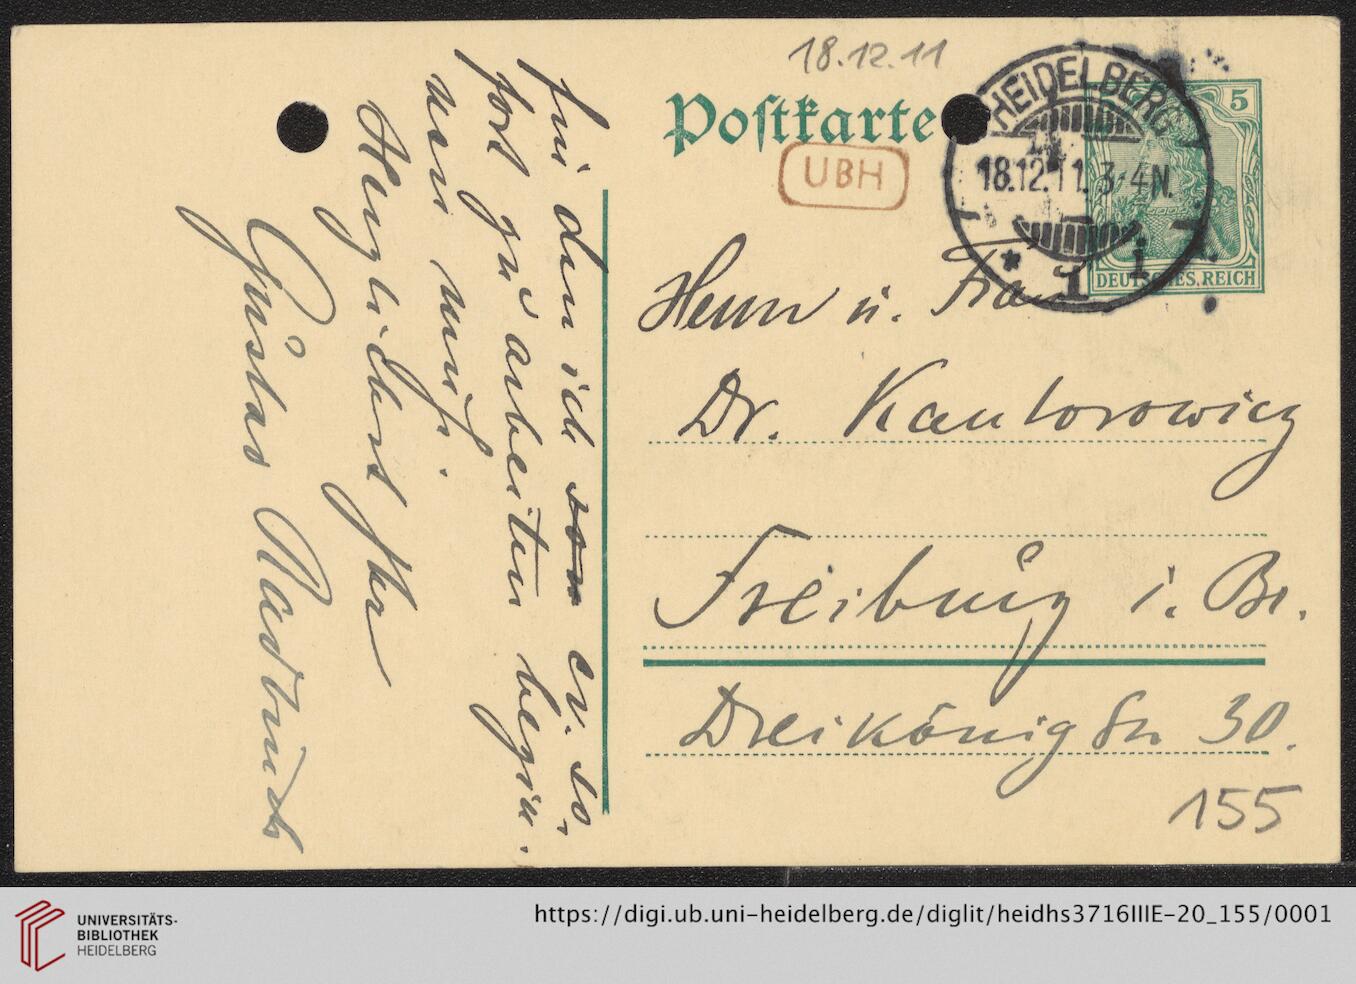 18.12.11
Postkarte
UBH
HEIDELBERG
18.12.11. 3-4N.
* 1 i
5
DEUTSCHES REICH
Herrn u. Frau
Dr. Kantorowicz
Freiburg i. Br.
Dreikönigstr 30.
155
für den ich von ev. so,
fort zu arbeiten begin-
nen muß.
Herzlichst Ihr
Gustav Radbruch
UNIVERSITÄTS-
BIBLIOTHEK
HEIDELBERG
https://digi.ub.uni-heidelberg.de/diglit/heidhs3716IIIE-20_155/0001